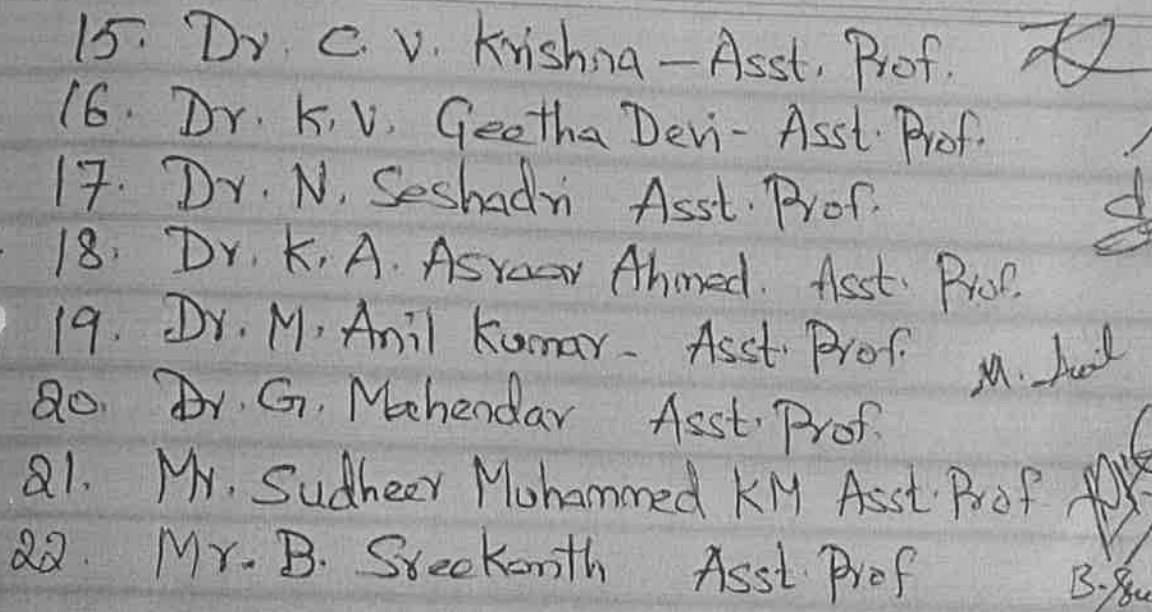 15. Dr. C. V. Krishna - Asst. Prof.
16. Dr. K. V. Geetha Devi - Asst. Prof.
17. Dr. N. Seshadri Asst. Prof.
18. Dr. K. A. Asraar Ahmed. Asst. Prof.
19. Dr. M. Anil Kumar - Asst. Prof. M. Anil
20. Dr. G. Mahendar Asst. Prof.
21. Mr. Sudheer Muhammed KM Asst. Prof
22. Mr. B. Sreekanth Asst. Prof